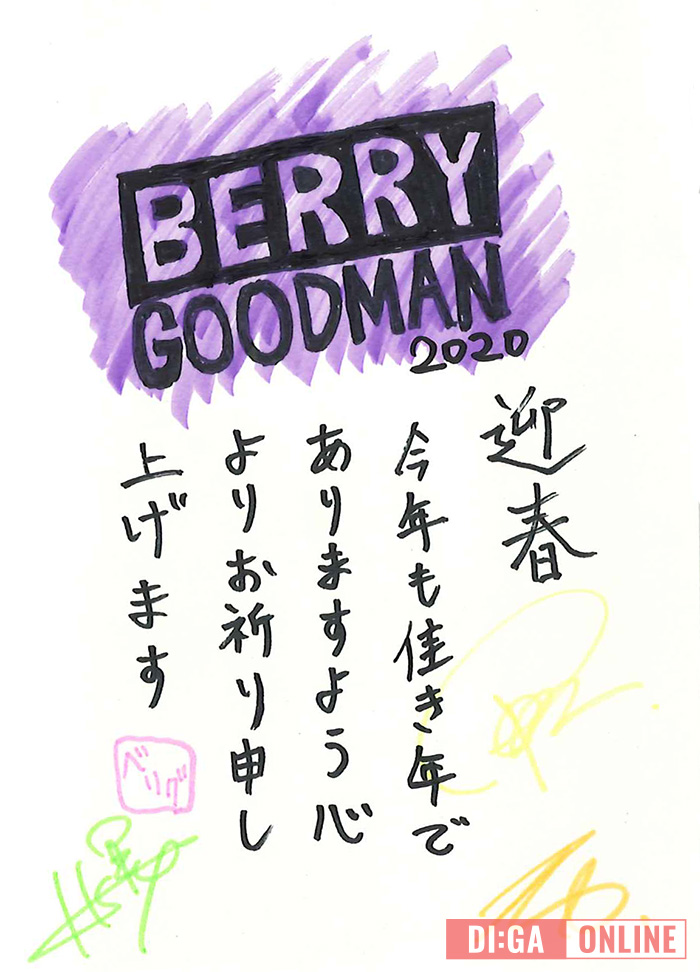 BERRY
GOODMAN
2020
迎春
今年も佳き年で
ありますよう心
よりお祈り申し
上げます
ベリグ
DI:GA ONLINE